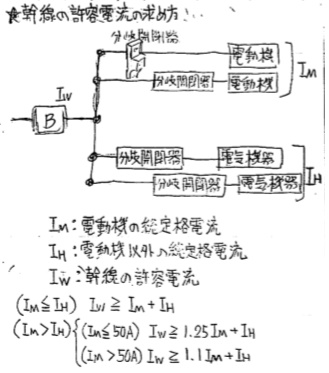 ★幹線の許容電流の求め方
分岐開閉器
電動機
IM
IW
分岐開閉器
電動機
B
分岐開閉器
電気機器
IH
分岐開閉器
電気機器
IM:電動機の総定格電流
IH:電動機以外の総定格電流
IW:幹線の許容電流
(IM≦IH) IW≧IM+IH
(IM>IH) (IM≦50A) IW≧1.25IM+IH
(IM>50A) IW≧1.1IM+IH